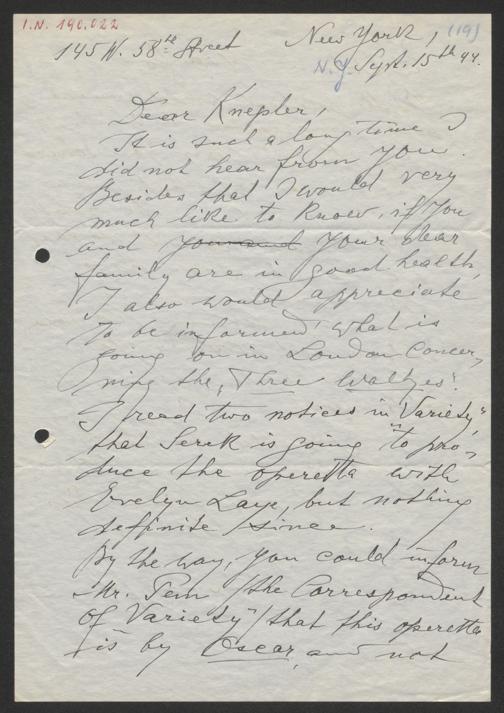 I.N. 190.022
New York, (19)
145 W. 58th Street
N.Y. Sept. 15th 44.
Dear Knepler,
It is such a long time I
did not hear from you.
Besides that I would very
much like to know, if you
and your and your dear
family are in good health,
I also would appreciate
to be informed what is
going on in London concer,
ning the „Three Waltzes".
I read two notices in „Variety"
that Serek is going to pro,
duce the operetta with
Evelyn Laye, but nothing
deffinite since.
By the way, you could inform
Mr. /the Correspondent
of Variety"/ that this operetta
is by Oscar, and not